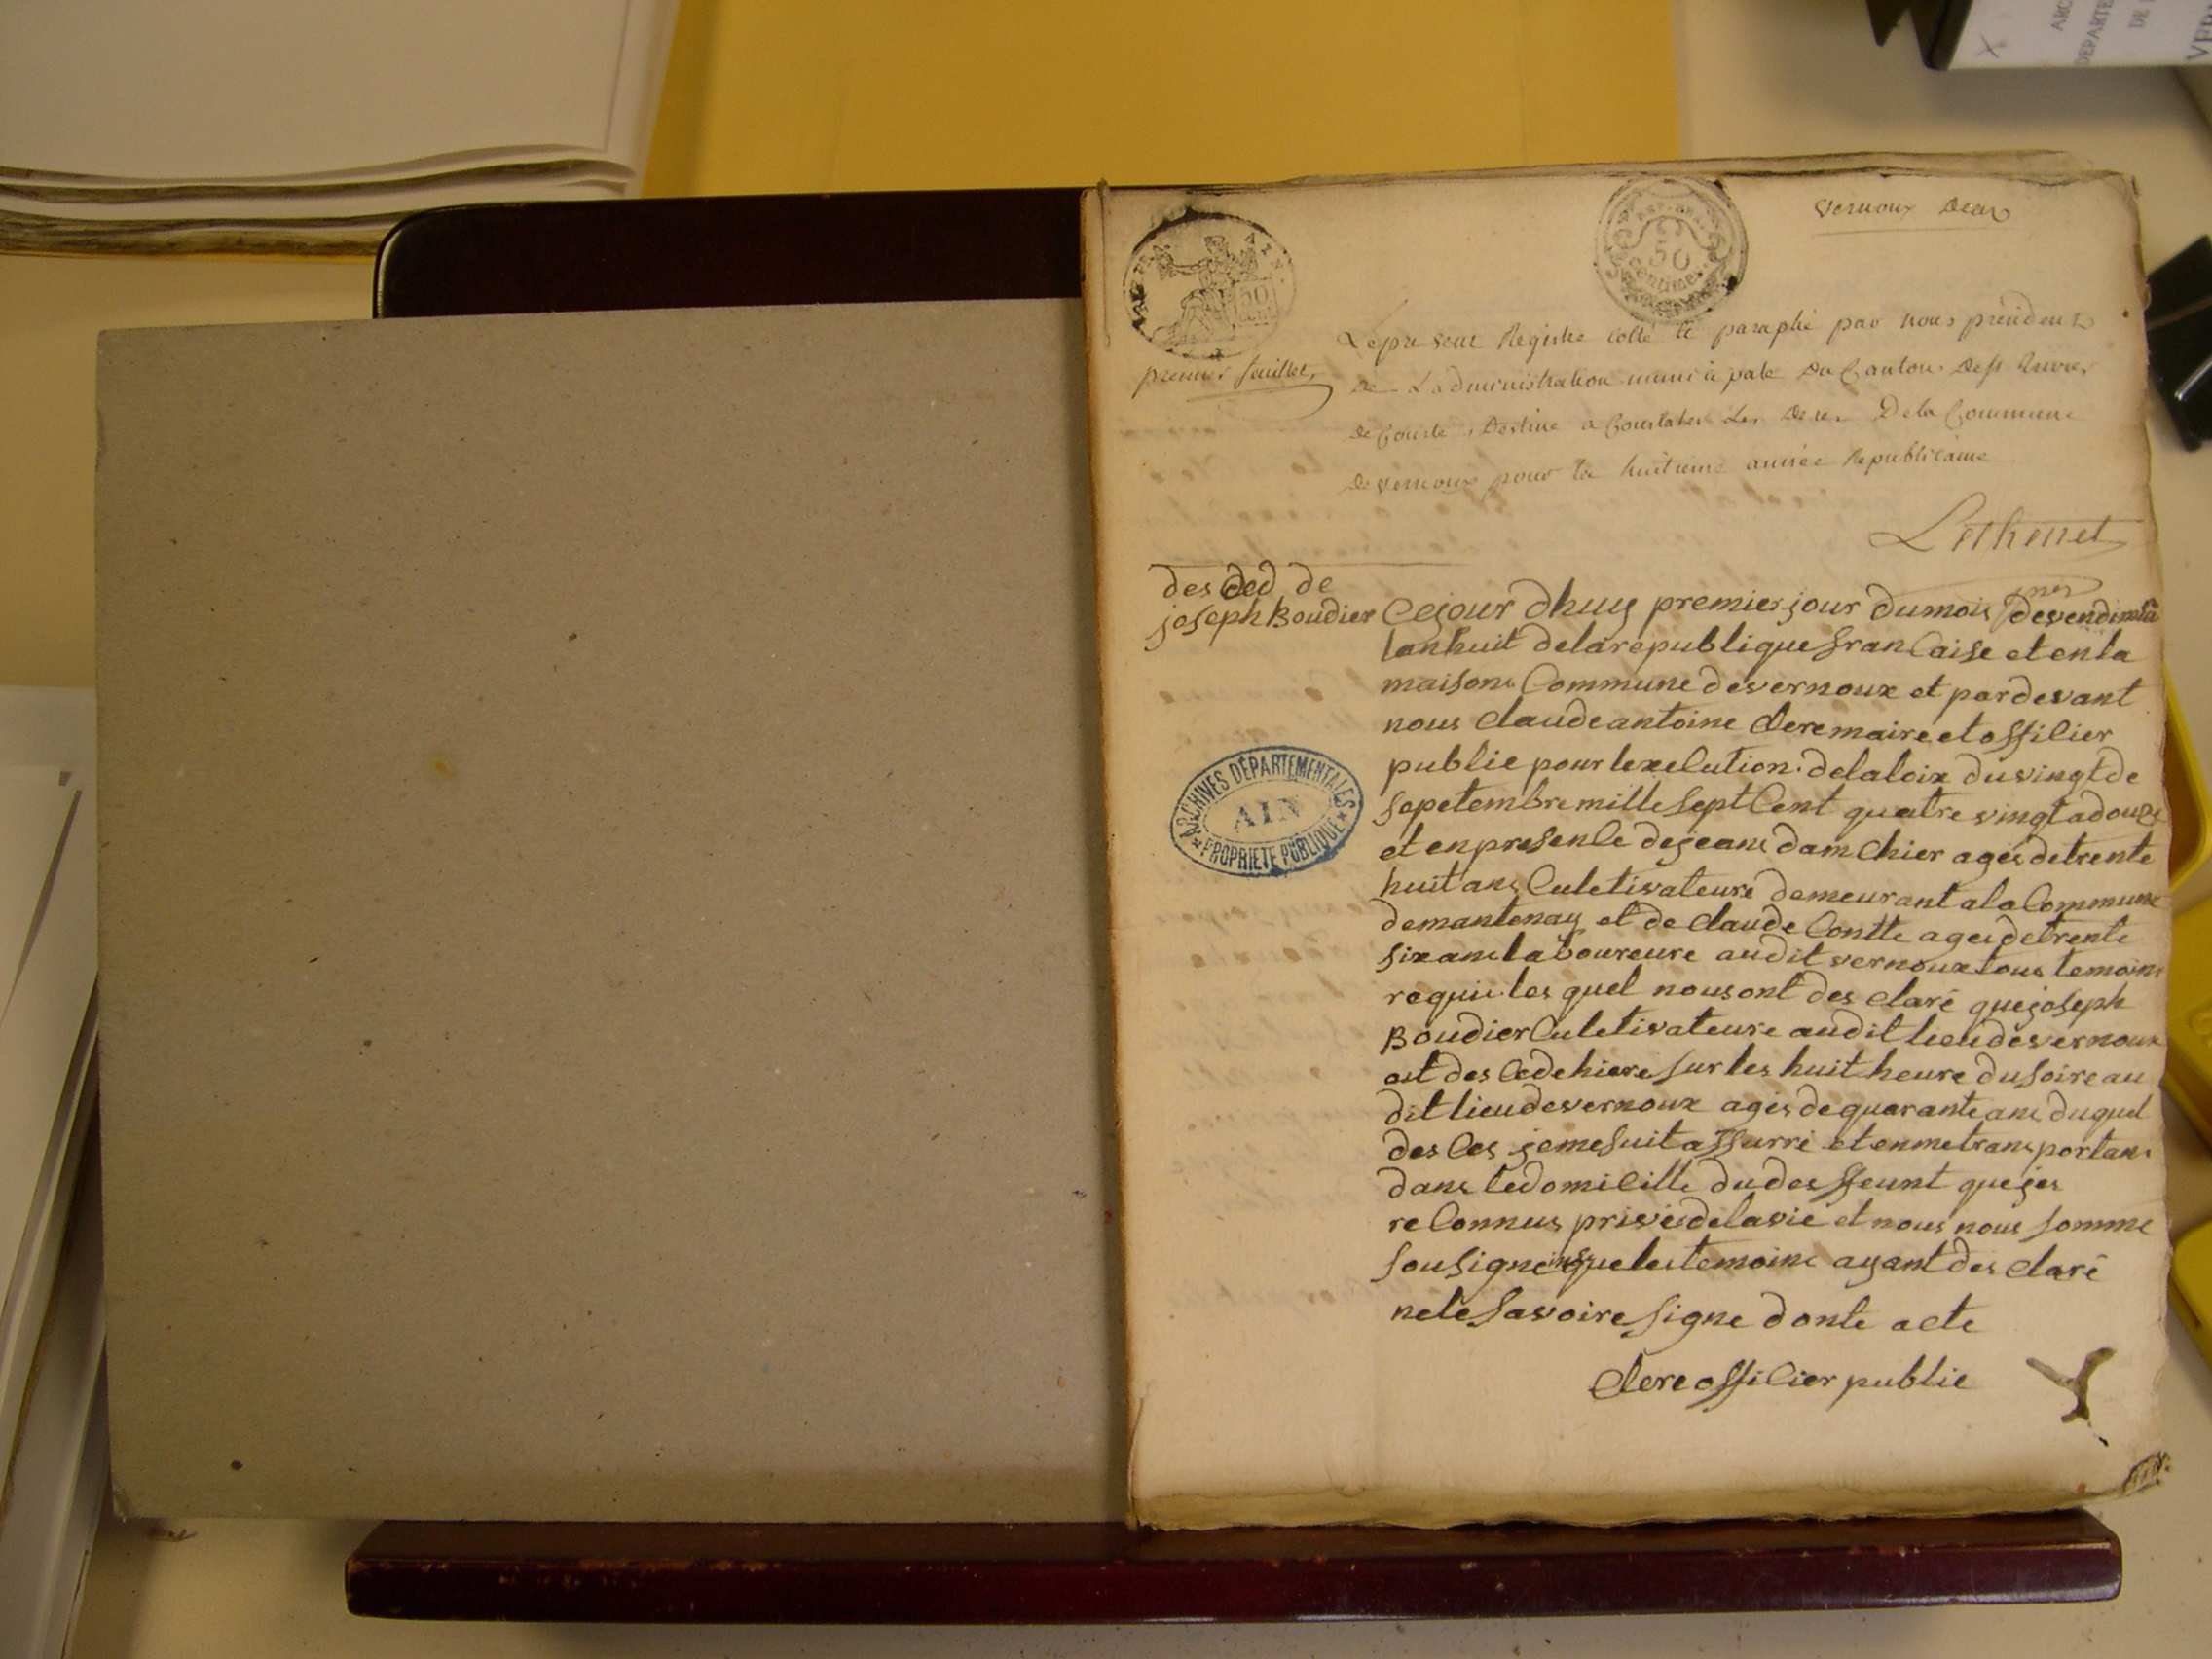 vernoux Deces
50
centimes
50
premier feuillet
Le present Registre Cotté et paraphé par nous president
De Ladministration municipale Du Canton De st trivier
De Courte, Destiné a Constater Les Deces De la Commune
De vernoux pour la huitieme année Republicaine
des ced de
joseph Boudier
Cejour dhuy premier jour dumois devendimia
mer
lanhuit delarepublique francaise et en la
maisons Commune devernoux et pardevant
nous claude antoine Clere maire et offilier
public pour lexecution delaloix duvingt de
sepetembre mille sept Cent quatre vingtadouze
et enpresence dejeans damchier ages detrente
huit ans Culetivateure demeurant ala Commune
demantenay et de claude Contte ages detrente
six ans laboureure audit vernoux tous temoins
requis les quel nous ont des claré quejoseph
Boudier Culetivateure audit lieu devernoux
est des Cede hiere sur les huit heure du soire au
dit lieu devernoux ages de quarante ans duquel
des Ces jeme suit assurré et enmetransportans
dans ledomicille du des ffeunt quejes
reConnus privés delavie et nous nous somme
sousigne que les temoins ayant des claré
nele savoire signe donte acte
Clere offilier public
ARCHIVES DÉPARTEMENTALES
AIN
PROPRIÉTÉ PUBLIQUE